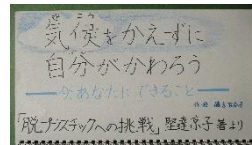 きこう
気候をかえずに
自分がかわろう
今あなたにできること
「脱プラスチックへの挑戦」堅達京子著より